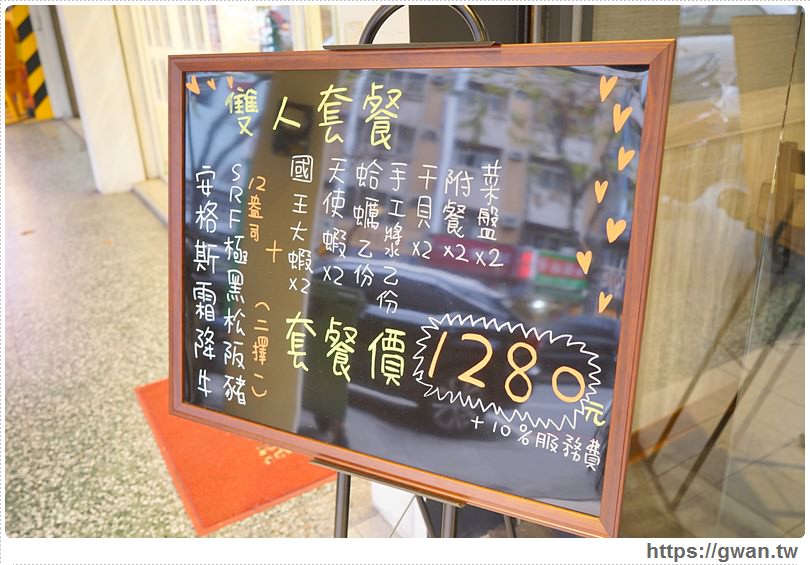 雙人套餐
安格斯霜降牛
SRF極黑松阪豬
12盎司
(二擇一)
+
國王大蝦x2
天使蝦x2
蛤蠣乙份
手工漿乙份
干貝x2
附餐x2
菜盤x2
套餐價1280元
+10%服務費
https://gwan.tw